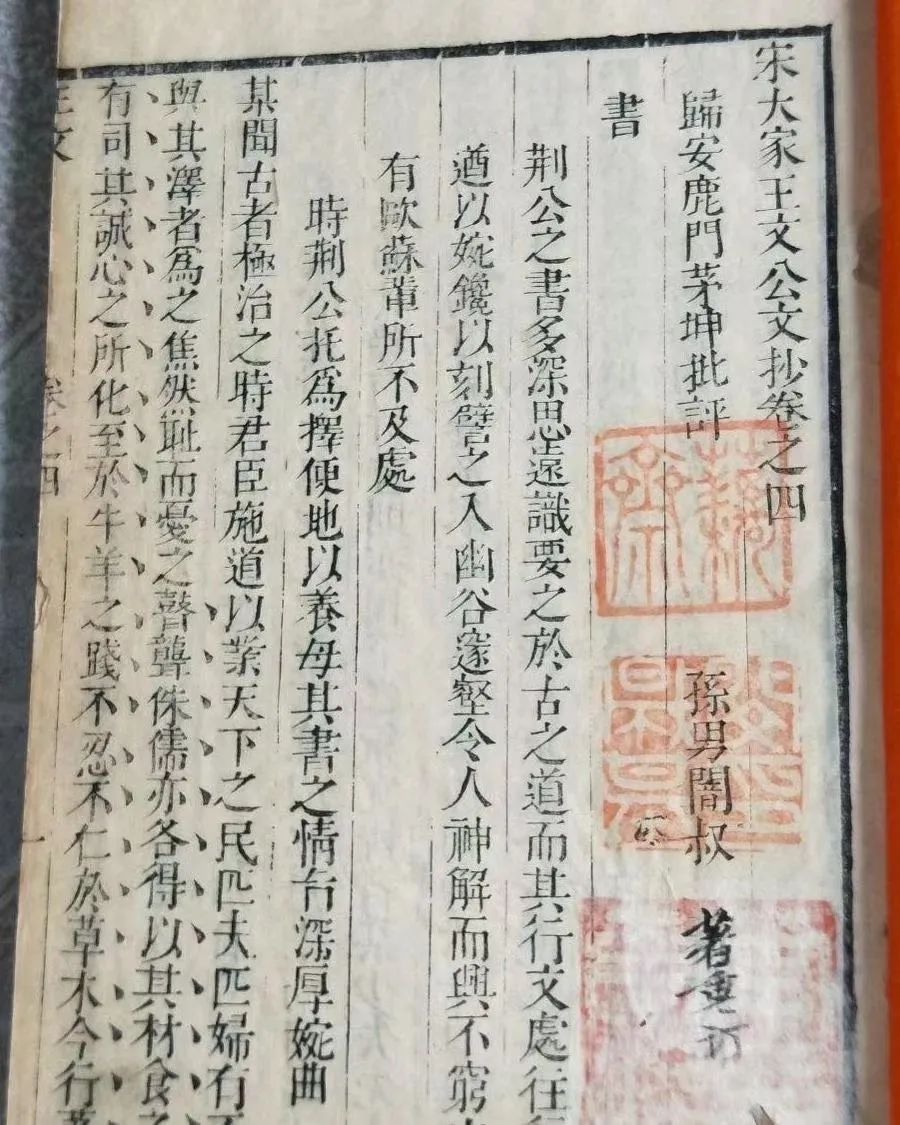 宋大家王文公文抄卷之四
歸安鹿門茅坤批評
孫男闇叔
著重訂
書
荆公之書多深思遠識要之於古之道而其行文處往
遒以婉鑱以刻譬之入幽谷邃壑令人神解而興不窮
有歐蘇輩所不及處
時荆公托為擇便地以養母其書之情旨深厚婉曲
某聞古者極治之時君臣施道以業天下之民匹夫匹婦有不
與其澤者為之焦然恥而憂之瞽聾侏儒亦各得以其材食之
有司其誠心之所化至於牛羊之踐不忍不仁於草木今行葦
王文
卷之四
一